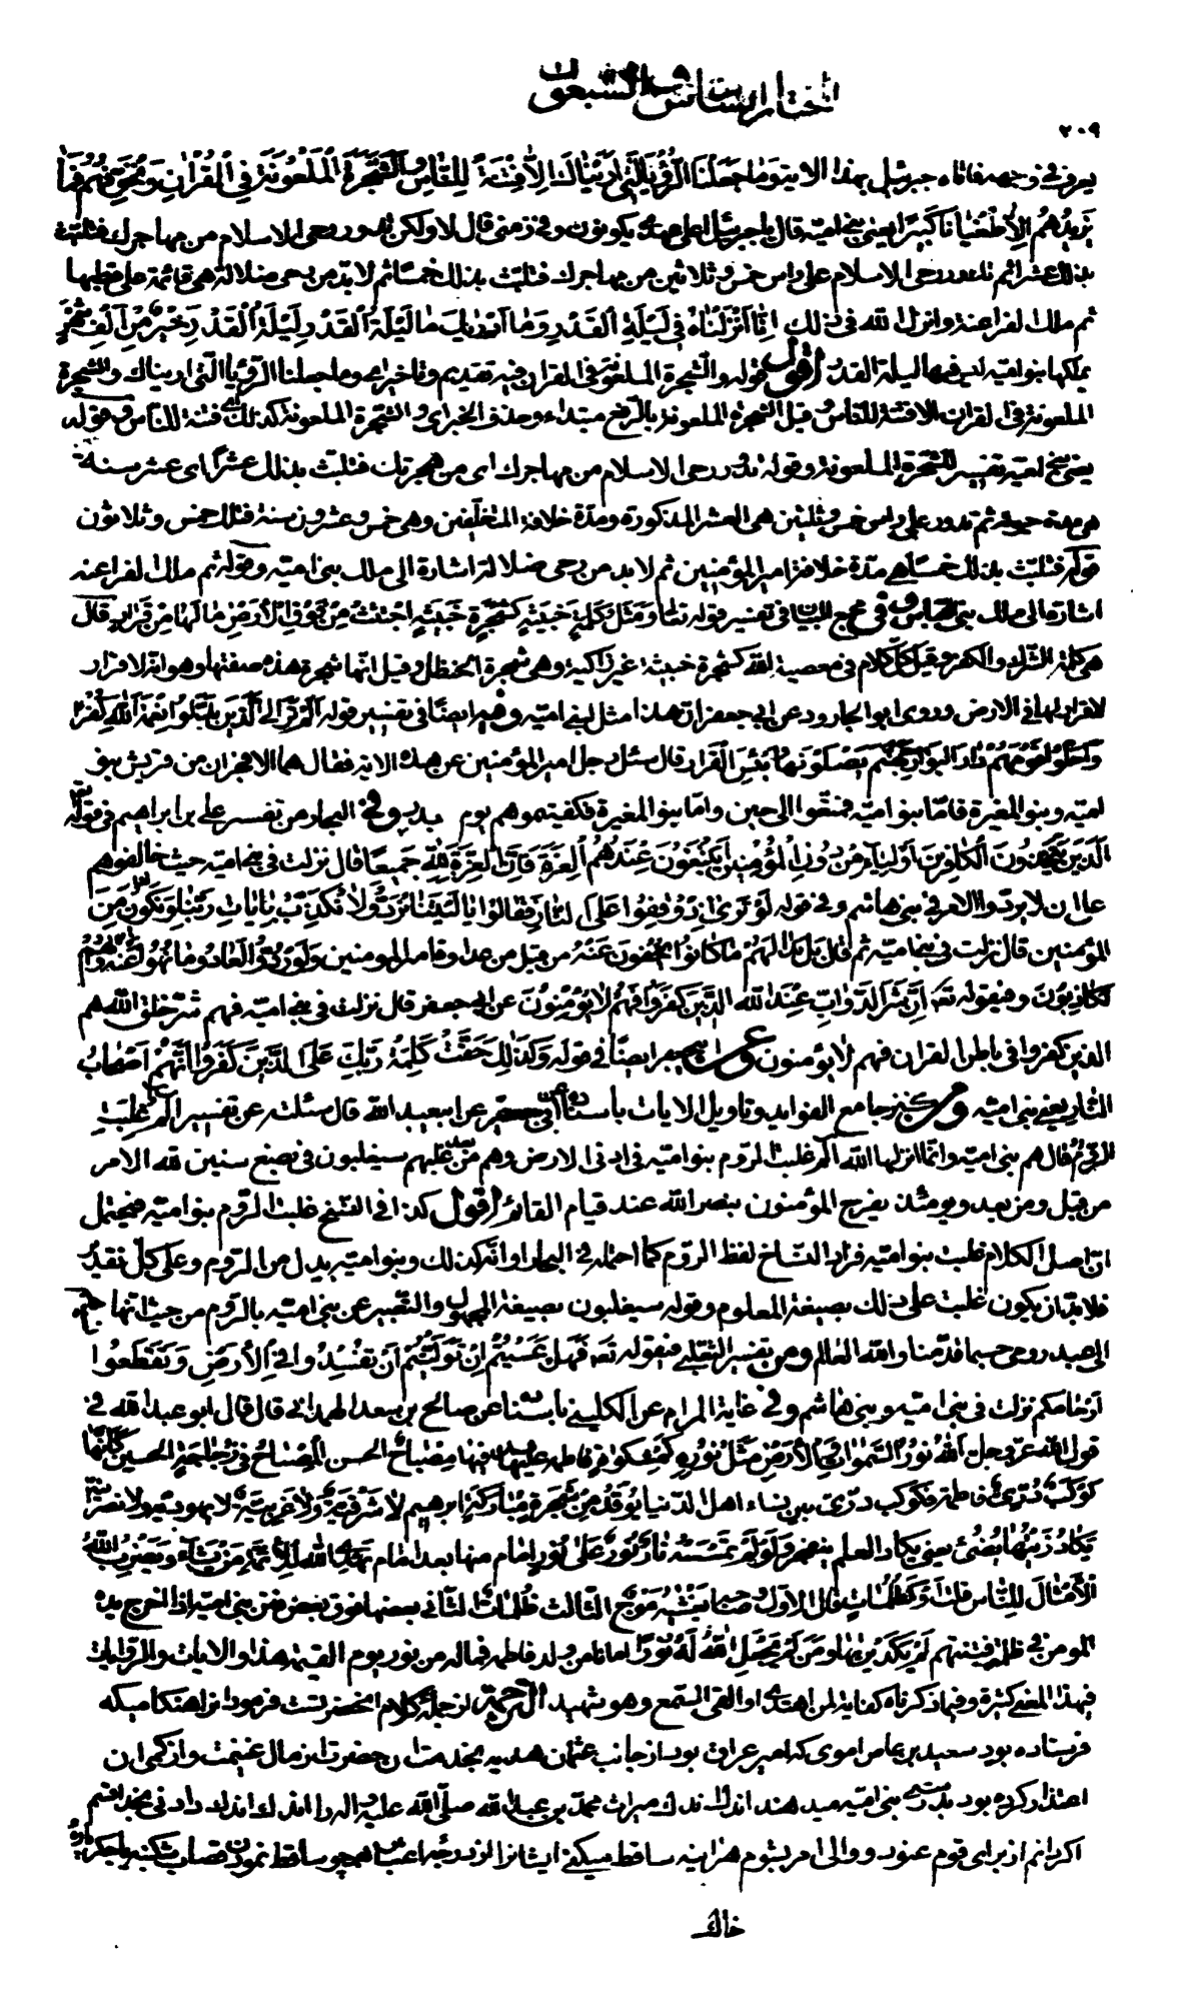 المختار السادس والسبعون
٢٠٩
يعرف في وجهه فاتاه جبرئيل بهذا الاية وَمَا جَعَلْنَا الرُّؤْيَا الَّتِي أَرَيْنَاكَ إِلَّا فِتْنَةً لِلنَّاسِ وَالشَّجَرَةَ الْمَلْعُونَةَ فِي الْقُرْآنِ وَنُخَوِّفُهُمْ فَمَا
يَزِيدُهُمْ إِلَّا طُغْيَانًا كَبِيرًا يعني بني اميّة قال يا جبرئيل اعلى عهدى يكونون وفي زمنى قال لا ولكن تدور رحى الاسلام من مهاجرك فتلبث
بذلك عشرا ثم تدور رحى الاسلام على راس خمس وثلاثين من مهاجرك فتلبث بذلك خمسا ثم لا بد من رحى ضلالة هى قائمة على قطبها
ثم ملك الفراعنة وانزل الله فى ذلك إِنَّا أَنْزَلْنَاهُ فِي لَيْلَةِ الْقَدْرِ وَمَا أَدْرَاكَ مَا لَيْلَةُ الْقَدْرِ لَيْلَةُ الْقَدْرِ خَيْرٌ مِنْ أَلْفِ شَهْرٍ
يملكها بنو اميّة ليس فيها ليلة القدر اقول قوله والشجرة الملعونة في القران فيه تقديم وتاخير اى وما جعلنا الرؤيا التى اريناك والشجرة
الملعونة في القران الا فتنة للناس وقيل الشجرة الملعونة بالرفع مبتداء وحذف الخبر اى والشجرة الملعونة كذلك اى فتنة للناس وقوله
يعنى بنى اميّة تفسير للشجرة الملعونة وقوله تدور رحى الاسلام من مهاجرك اى من هجرتك فتلبث بذلك عشرًا اى عشر سنة
هى مدة حيوته ثم تدور على راس خمس وثلثين هى العشر المذكورة ومدة خلافة المتخلّفين وهى خمس وعشرون سنة فتلك خمس وثلاثون
قوله فتلبث بذلك خمسًا هى مدّة خلافة امير المؤمنين ثم لا بد من رحى ضلالة اشارة الى ملك بنى اميّة وقوله ثم ملك الفراعنة
اشارة الى ملك بنى عباس وفي مجمع البيان فى تفسير قوله تعالى وَمَثَلُ كَلِمَةٍ خَبِيثَةٍ كَشَجَرَةٍ خَبِيثَةٍ اجْتُثَّتْ مِنْ فَوْقِ الْأَرْضِ مَا لَهَا مِنْ قَرَارٍ قال
هى كلمة الشرك والكفر وقيل كلّ كلام فى معصية الله كشجرة خبيثة غير زاكية وهى شجرة الحنظل وقيل انها شجرة هذه صفتها وهو انه لا قرار
لها فى الارض وروى ابو الجارود عن ابي جعفر ان هذا مثل لبنى اميّة وفيه ايضًا فى تفسير قوله أَلَمْ تَرَ إِلَى الَّذِينَ بَدَّلُوا نِعْمَةَ اللَّهِ كُفْرًا
وَأَحَلُّوا قَوْمَهُمْ دَارَ الْبَوَارِ جَهَنَّمَ يَصْلَوْنَهَا وَبِئْسَ الْقَرَارُ قال سئل رجل امير المؤمنين عن هذه الاية فقال هما الافجران من قريش بنو
اميّة وبنو المغيرة فامّا بنو اميّة فمتّعوا الى حين وامّا بنو المغيرة فكفيتموهم يوم بدر وفي البحار من تفسير على بن ابراهيم فى قوله
الَّذِينَ يَتَّخِذُونَ الْكَافِرِينَ أَوْلِيَاءَ مِنْ دُونِ الْمُؤْمِنِينَ أَيَبْتَغُونَ عِنْدَهُمُ الْعِزَّةَ فَإِنَّ الْعِزَّةَ لِلَّهِ جَمِيعًا قال نزلت فى بنى اميّة حيث خالفوهم
على ان لا يردّوا الامر فى بنى هاشم وفى قوله لَوْ تَرَى إِذْ وُقِفُوا عَلَى النَّارِ فَقَالُوا يَا لَيْتَنَا نُرَدُّ وَلَا نُكَذِّبَ بِآيَاتِ رَبِّنَا وَنَكُونَ مِنَ
المؤمنين قال نزلت فى بنى اميّة ثم قال بَلْ بَدَا لَهُمْ مَا كَانُوا يُخْفُونَ من قبل من عداوة امير المؤمنين وَلَوْ رُدُّوا لَعَادُوا لِمَا نُهُوا عَنْهُ وَإِنَّهُمْ
لَكَاذِبُونَ وفى قوله تعالى إِنَّ شَرَّ الدَّوَابِّ عِنْدَ اللَّهِ الَّذِينَ كَفَرُوا فَهُمْ لَا يُؤْمِنُونَ عن ابى جعفر قال نزلت فى بنى اميّة فهم شرّ خلق الله هم
الذين كفروا فى باطن القران فهم لا يؤمنون وعن ابى جعفر ايضًا فى قوله وَكَذَلِكَ حَقَّتْ كَلِمَةُ رَبِّكَ عَلَى الَّذِينَ كَفَرُوا أَنَّهُمْ أَصْحَابُ
النَّارِ يعنى بنى اميّة ومن كنز جامع الفوايد وتاويل الايات باسناده عن ابى بصير عن ابيعبد الله قال سئلته عن تفسير الم غُلِبَتِ
الرُّومُ قال هم بنى اميّة وانّما انزلها الله الم غلبت الروم بنو اميّة فى ادنى الارض وهم من بعد غلبهم سيغلبون فى بضع سنين لله الامر
من قبل ومن بعد ويومئذ يفرح المؤمنون بنصر الله عند قيام القائم اقول كذا فى النسخ غلبت الروم بنو اميّة فيحتمل
انّ اصل الكلام غلبت بنو اميّة فزاد النساخ لفظ الروم كما احتمله فى البحار او انّه كذلك وبنو اميّة بدل من الروم وعلى كلّ تقدير
فلا بدّ ان يكون غلبت على ذلك بصيغة المعلوم وقوله سيغلبون بصيغة المجهول والتعبير عن بنى اميّة بالروم من حيث انتهائهم
الى عبد رومى حسبما قدّمنا والله العالم ومن تفسير الثعلبى فى قوله تعالى فَهَلْ عَسَيْتُمْ إِنْ تَوَلَّيْتُمْ أَنْ تُفْسِدُوا فِي الْأَرْضِ وَتُقَطِّعُوا
أرحامكم نزلت فى بنى اميّة وبنى هاشم وفى غاية المرام عن الكلينى باسناده عن صالح بن سعد الهمدانى قال قال ابو عبد الله فى
قول الله عزّ وجل اللَّهُ نُورُ السَّمَوَاتِ وَالْأَرْضِ مَثَلُ نُورِهِ كَمِشْكَوةٍ فاطمة عليها السلام فِيهَا مِصْبَاحٌ الحسن الْمِصْبَاحُ فِي زُجَاجَةٍ الحسين كَأَنَّهَا
كَوْكَبٌ دُرِّيٌّ فاطمة كوكب درّى بين نساء اهل الدنيا يُوقَدُ مِنْ شَجَرَةٍ مُبَارَكَةٍ ابرهيم لَا شَرْقِيَّةٍ وَلَا غَرْبِيَّةٍ لا يهوديّة ولا نصرانيّة
يَكَادُ زَيْتُهَا يُضِيءُ يعنى يكاد العلم ينفجر وَلَوْ لَمْ تَمْسَسْهُ نَارٌ نُورٌ عَلَى نُورٍ امام منها بعد امام يَهْدِي اللَّهُ للائمة مَنْ يَشَاءُ وَيَضْرِبُ اللَّهُ
الْأَمْثَالَ لِلنَّاسِ قلت أَوْ كَظُلُمَاتٍ قال الاوّل وصاحبه يَغْشَاهُ مَوْجٌ الثالث ظُلُمَاتٌ الثانى بعضها فوق بعض فتن بنى اميّة اذا اخرج يده
المؤمن فى ظلمة فتنتهم لَمْ يَكَدْ يَرَاهَا وَمَنْ لَمْ يَجْعَلِ اللَّهُ لَهُ نُورًا اماما من ولد فاطمة فما له من نور يوم القيمة هذا والايات والروايات
فى هذا المعنى كثيرة وفيما ذكرناه كفاية لمن اهتدى او القى السمع وهو شهيد الترجمة از جمله كلام آنحضرتست فرمود در هنكاميكه
فرستاده بود سعيد بن عاص اموى كه امير عراق بود از جانب عثمان هديه بخدمت ان حضرت از مال غنيمت واز كمى ان
اعتذار كرده بود بدرستى بنى اميّه ميدهند اندك اندك ميراث محمّد بن عبد الله صلّى الله عليه واله را اندك اندك دادنى بخدا قسم
اكر بمانم از براى قوم عنود ووالى امر بشوم هراينه ساقط ميكنم ايشانرا از درجه اعتبار همچو ساقط نمودن قصاب شكنبه يا جكر پاره
خاك